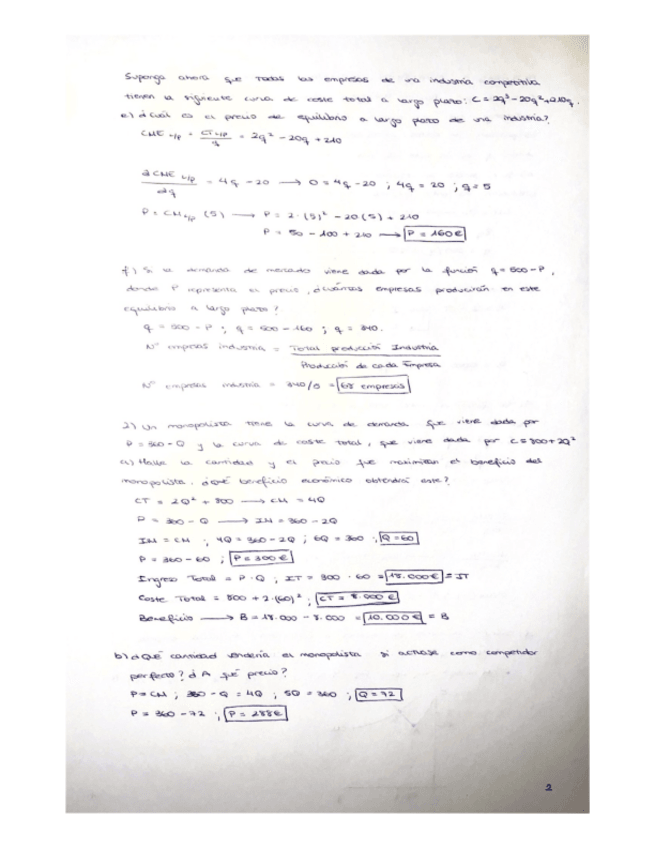 Suponga ahora que todas las empresas de una industria competitiva
tienen la siguiente curva de coste total a largo plazo: C = 2q³ - 20q² + 210q.
e) ¿Cuál es el precio de equilibrio a largo plazo de una industria?
CME L/P = CT L/P / q = 2q² - 20q + 210
∂CME L/P / ∂q = 4q - 20 → 0 = 4q - 20 ; 4q = 20 ; q = 5
P = CM L/P (5) → P = 2·(5)² - 20(5) + 210
P = 50 - 100 + 210 → P = 160€
f) Si la demanda de mercado viene dada por la función q = 500 - P,
donde P representa el precio, ¿cuántas empresas producirán en este
equilibrio a largo plazo?
q = 500 - P ; q = 500 - 160 ; q = 340.
Nº empresas industria = Total producción Industria
Producción de cada Empresa
Nº empresas industria = 68 empresas
2) Un monopolista tiene la curva de demanda que viene dada por
P = 360 - Q y la curva de coste total, que viene dada por C = 800 + 2Q²
a) Halla la cantidad y el precio que maximizan el beneficio del
monopolista. ¿Qué beneficio económico obtendrá este?
CT = 2Q² + 800 → CM = 4Q
P = 360 - Q → IM = 360 - 2Q
IM = CM ; 4Q = 360 - 2Q ; 6Q = 360 ; Q = 60
P = 360 - 60 ; P = 300€
Ingreso Total = P · Q ; IT = 300 · 60 = 18.000€ = IT
Coste Total = 800 + 2·(60)² ; CT = 8.000€
Beneficio → B = 18.000 - 8.000 = 10.000€ = B
b) ¿Qué cantidad vendería el monopolista si actuase como competidor
perfecto? ¿A qué precio?
P = CM ; 360 - Q = 4Q ; 5Q = 360 ; Q = 72
P = 360 - 72 ; P = 288€
2